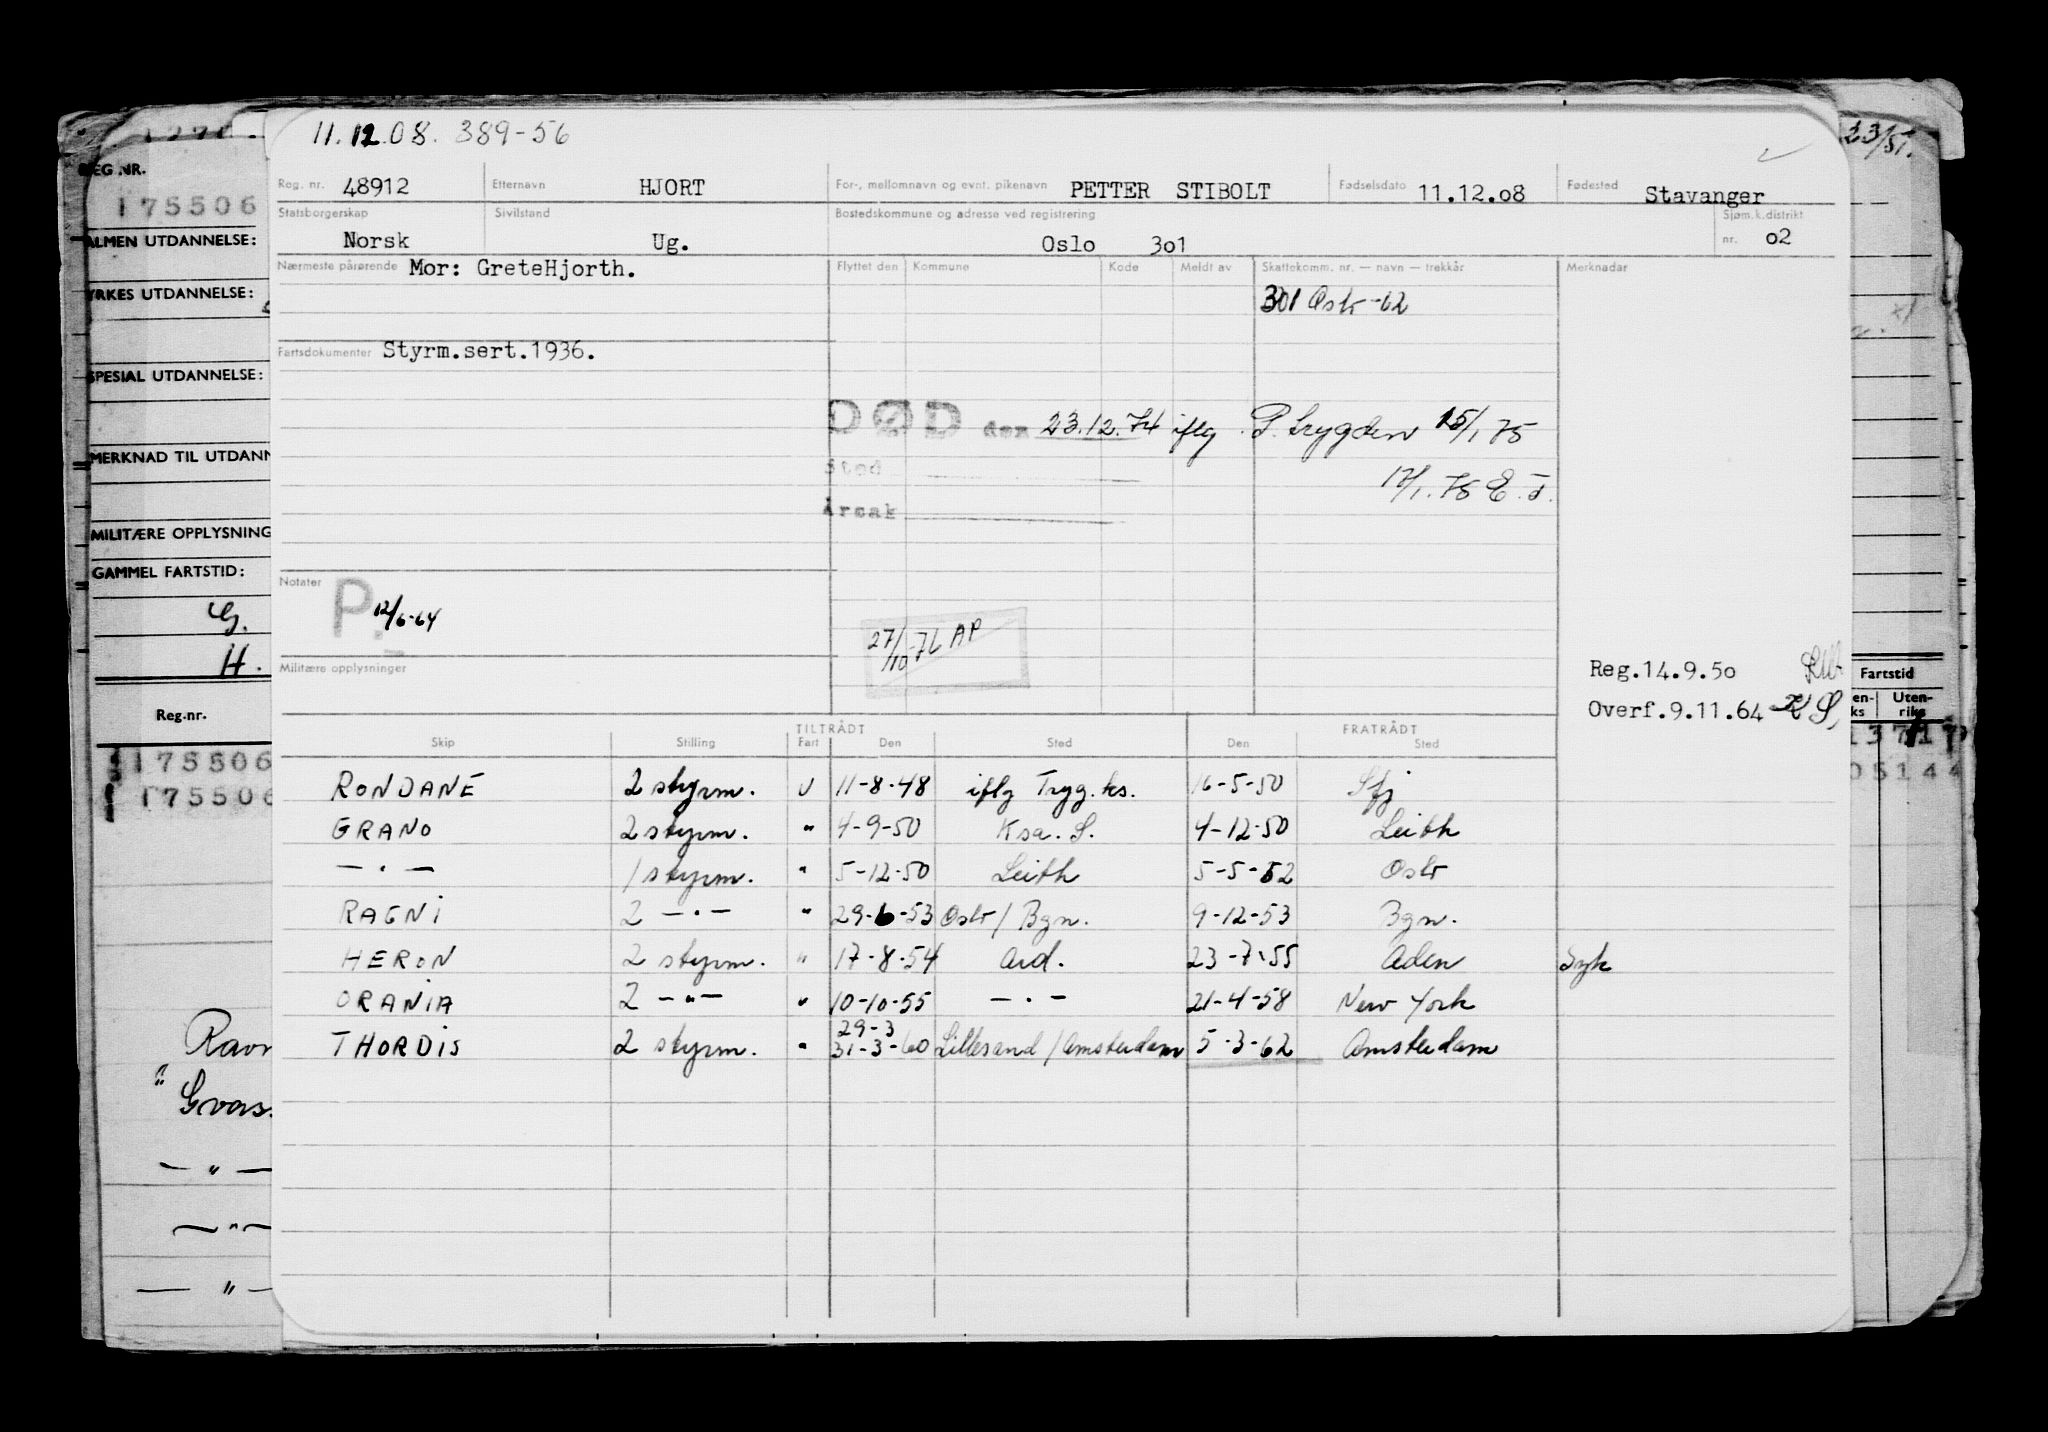 11.12.08. 389-56
Reg. nr. 48912 Etternavn HJORT For-, mellomnavn og evnt. pikenavn PETTER STIBOLT Fødselsdato 11.12.08 Fødested Stavanger
Statsborgerskap Norsk Sivilstand Ug. Bostedskommune og adresse ved registrering Oslo 301 Sjøm.k.distrikt nr. 02
Nærmeste pårørende Mor: GreteHjorth. Flyttet den Kommune Kode Meldt av Skattekomm. nr. — navn — trekkår Merknadar
301 Oslo -62
Fartsdokumenter Styrm.sert.1936.
DØD den 23.12.74 iflg. P. trygden 15/1 75
Sted
Årsak
17/1. 75 E. J.
Notater P. 12/6-64
27/10 76 AP
Militære opplysninger
Reg.14.9.50
Overf.9.11.64 K S
TILTRÅDT FRATRÅDT
Skip Stilling Fart Den Sted Den Sted
RONDANE 2 styrm. U 11-8-48 iflg Tryg.ks. 16-5-50 Sfj
GRANO 2 styrm. " 4-9-50 Ksa. S. 4-12-50 Leith
— " — 1 styrm. " 5-12-50 Leith 5-5-52 Oslo
RAGNI 2 — " — " 29-6-53 Oslo/Bgn. 9-12-53 Bgn.
HERON 2 styrm. " 17-8-54 Ard. 23-7-55 Aden Syk
ORANIA 2 — " — " 10-10-55 — " — 21-4-58 New York
THORDIS 2 styrm. " 29-3 31-3-60 Lillesand/Amsterdam 5-3-62 Amsterdam
REG.NR.
175506
ALMEN UTDANNELSE:
YRKES UTDANNELSE:
SPESIAL UTDANNELSE:
MERKNAD TIL UTDANN
MILITÆRE OPPLYSNING
GAMMEL FARTSTID:
G.
H.
Reg.nr.
175506
175506
— " —
— " —
— " —
23/51.
Fartstid
en-ks Uten-riks